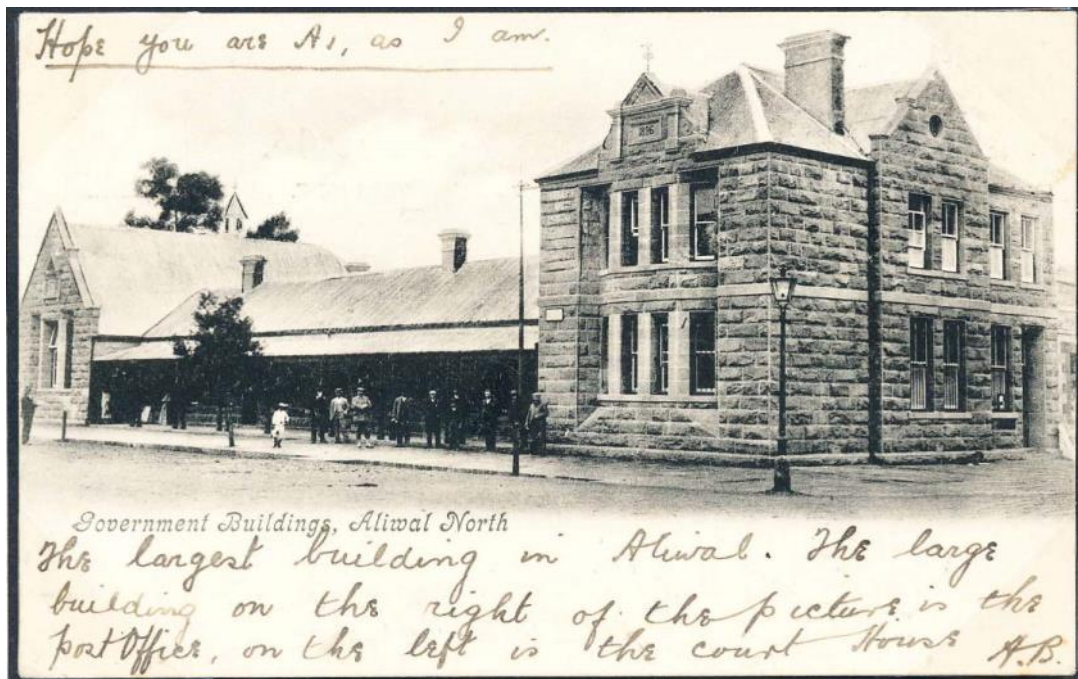 Hope you are A1, as I am.
1896
Government Buildings, Aliwal North
The largest building in Aliwal. The large
building on the right of the picture is the
post Office, on the left is the court House
A.B.